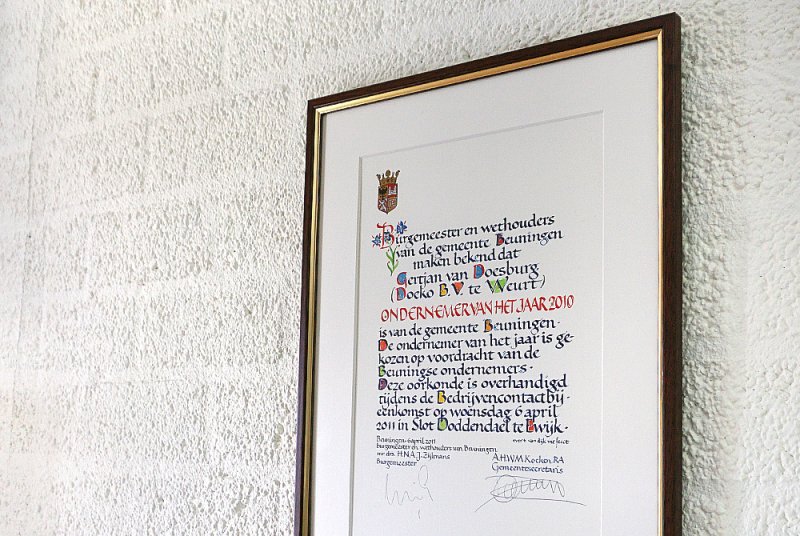 Burgemeester en wethouders
van de gemeente Beuningen
maken bekend dat
Gertjan van Doesburg
(Doeko B.V. te Weurt)
ONDERNEMER VAN HET JAAR 2010
is van de gemeente Beuningen.
De ondernemer van het jaar is ge-
kozen op voordracht van de
Beuningse ondernemers.
Deze oorkonde is overhandigd
tijdens de Bedrijvencontactbij-
eenkomst op woensdag 6 april
2011 in Slot Doddendael te Ewijk.
evert van dijk me fecit
Beuningen 6 april 2011
burgemeester en wethouders van Beuningen
mr. drs. H.N.A.J. Zijlmans
Burgemeester
A.H.W.M. Kocken, RA
Gemeentesecretaris